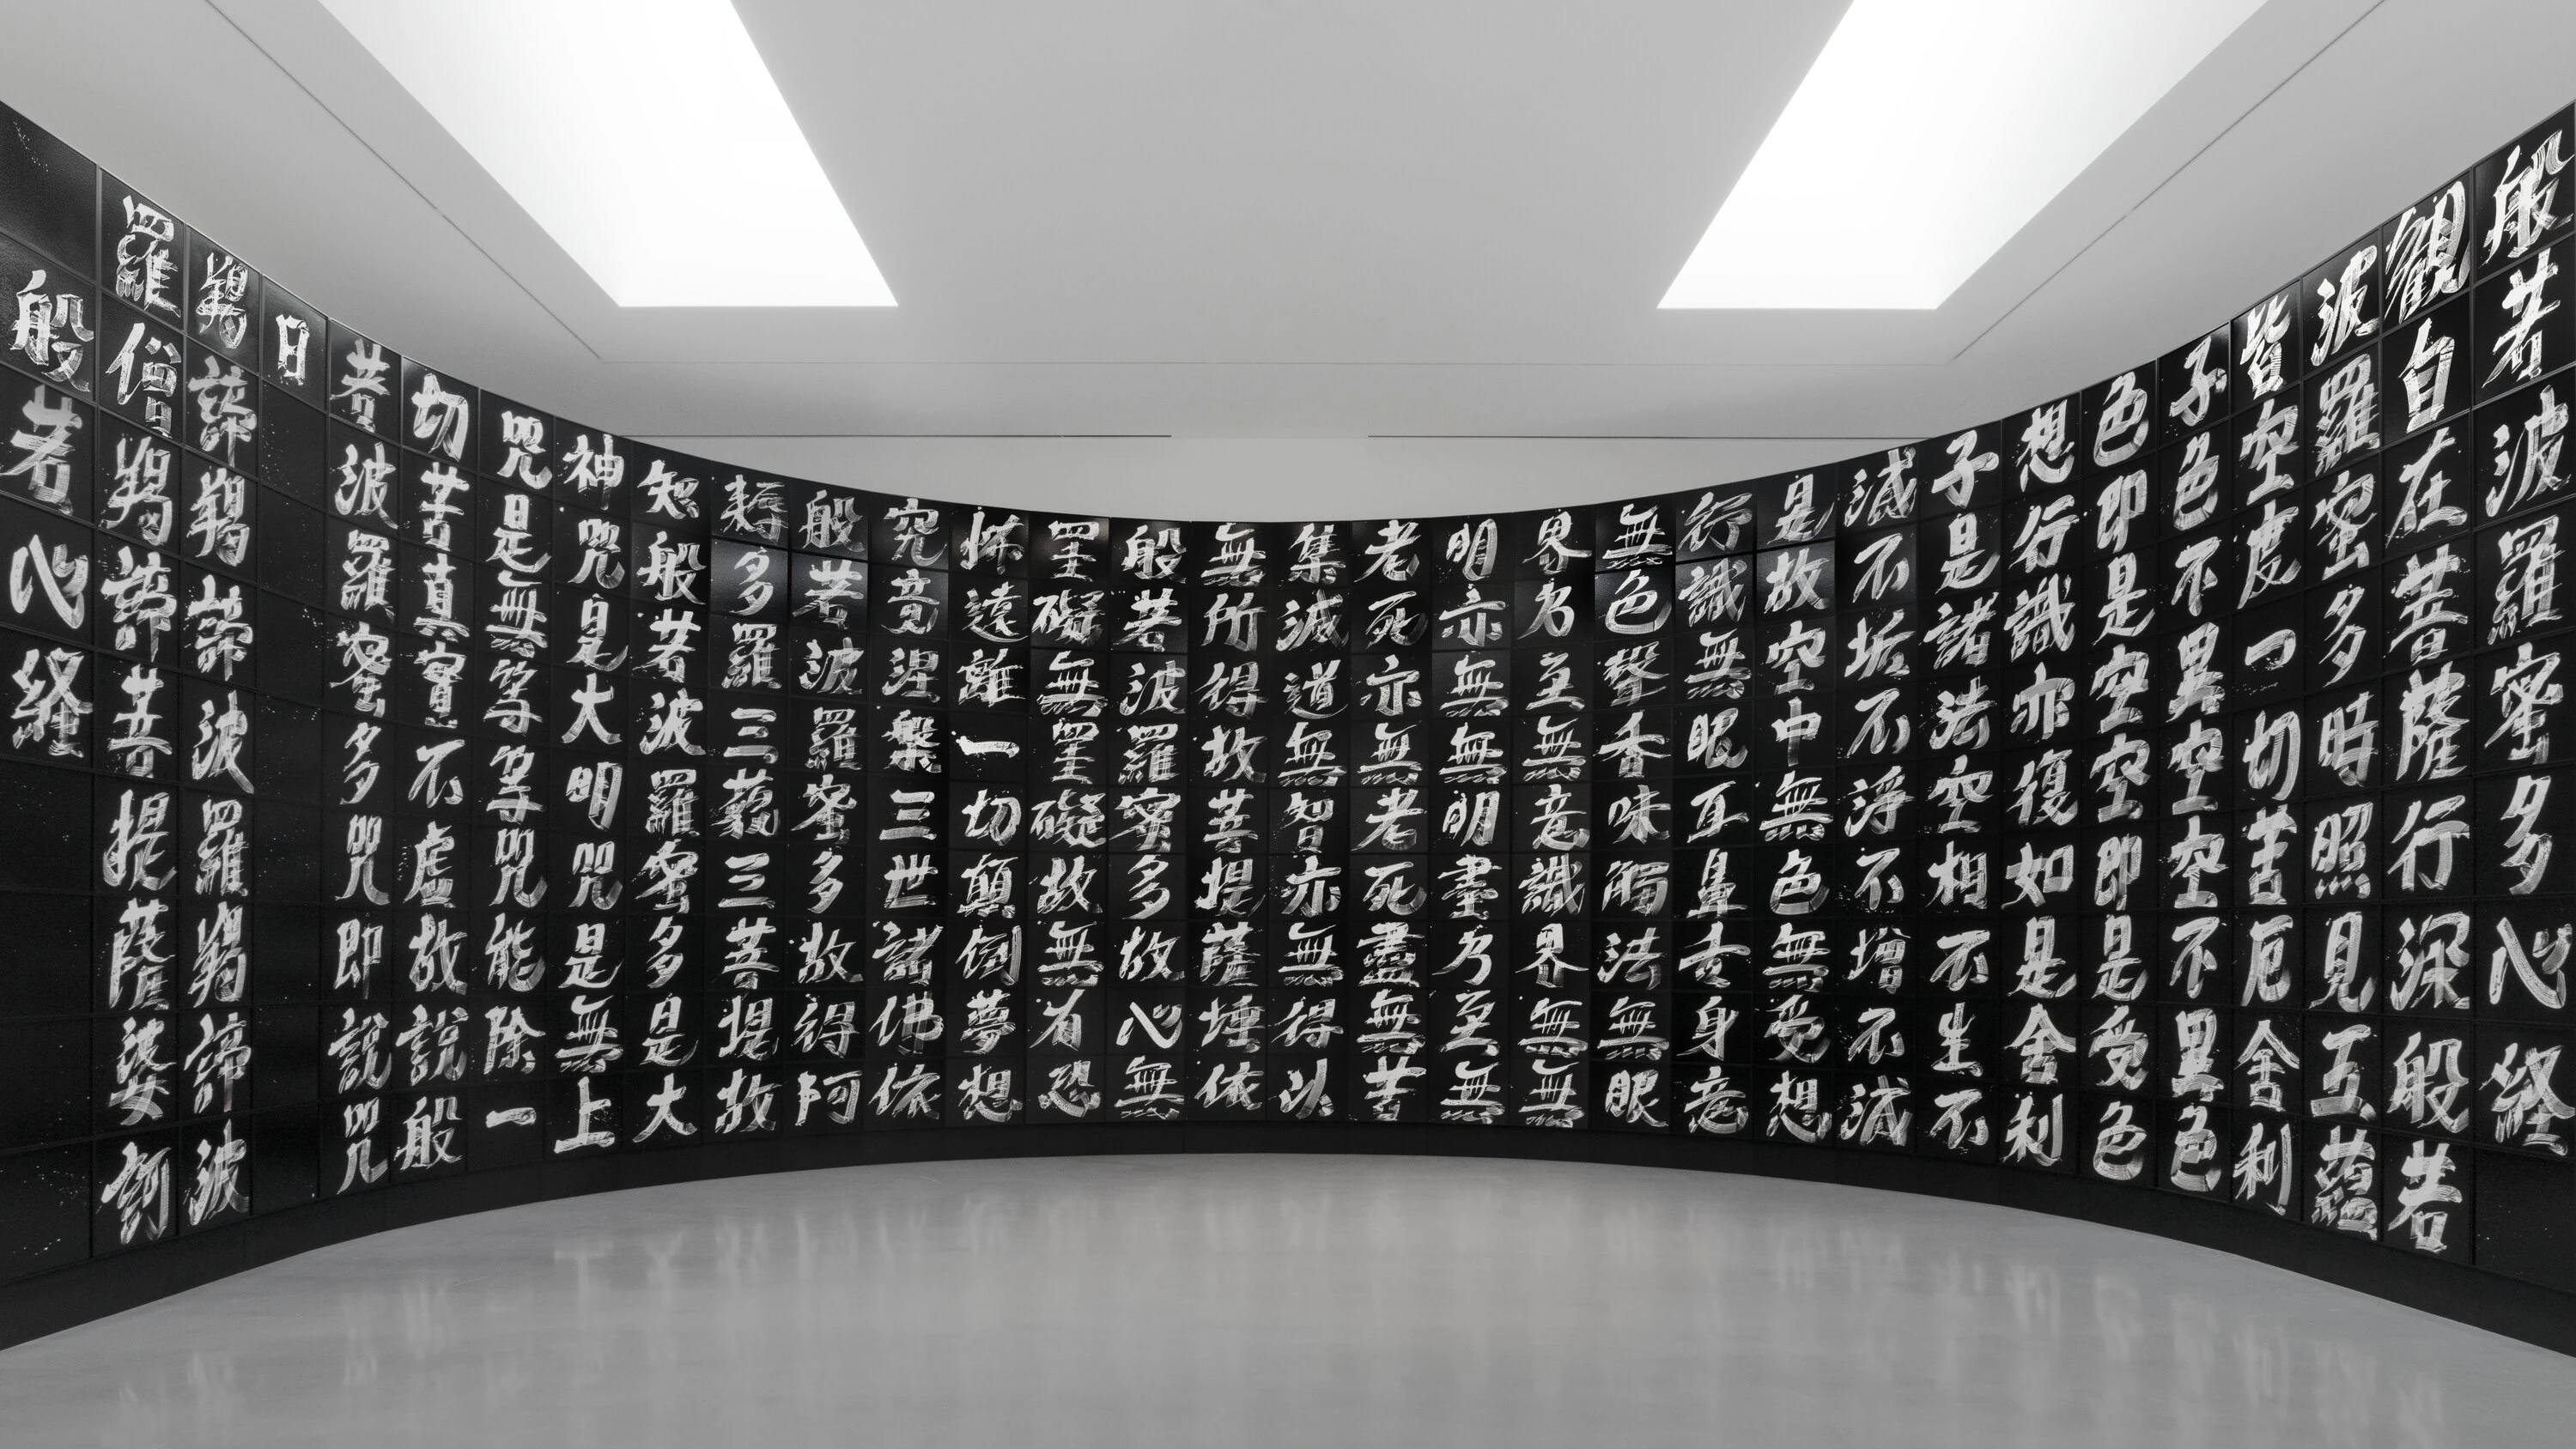 般若波羅蜜多心経
観自在菩薩行深般若
波羅蜜多時照見五蘊
皆空度一切苦厄舎利
子色不異空空不異色
色即是空空即是受色
想行識亦復如是舎利
子是諸法空相不生不
滅不垢不浄不増不減
是故空中無色無受想
行識無眼耳鼻舌身意
無色聲香味觸法無眼
界乃至無意識界無無
明亦無無明盡乃至無
老死亦無老死盡無苦
集滅道無智亦無得以
無所得故菩提薩埵依
般若波羅蜜多故心無
罣礙無罣礙故無有恐
怖遠離一切顛倒夢想
究竟涅槃三世諸佛依
般若波羅蜜多故得阿
耨多羅三藐三菩提故
知般若波羅蜜多是大
神咒是大明咒是無上
咒是無等等咒能除一
切苦真實不虚故説般
若波羅蜜多咒即説咒
曰
羯諦羯諦波羅羯諦波
羅僧羯諦菩提薩婆訶
般若心経